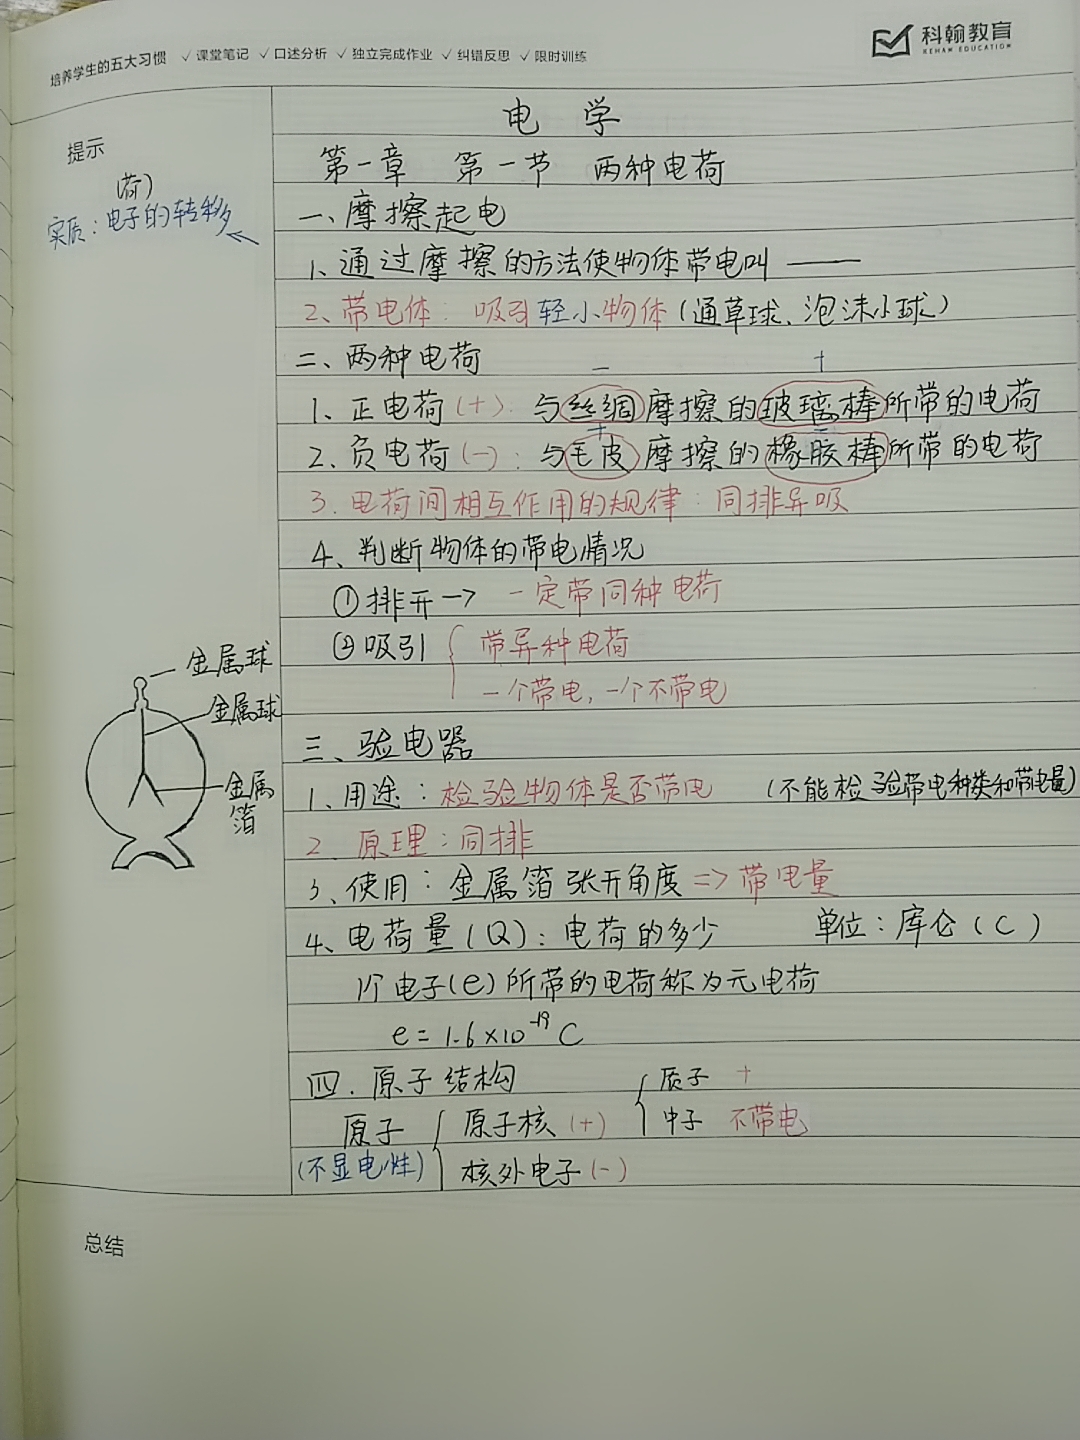 培养学生的五大习惯 ✓课堂笔记 ✓口述分析 ✓独立完成作业 ✓纠错反思 ✓限时训练
科翰教育
KEHAN EDUCATION
提示
(荷)
实质：电子的转移
电 学
第一章 第一节 两种电荷
一、摩擦起电
1、通过摩擦的方法使物体带电叫 ——
2、带电体：吸引轻小物体(通草球、泡沫小球)
二、两种电荷
− +
1、正电荷(+)：与丝绸摩擦的玻璃棒所带的电荷
+ −
2、负电荷(−)：与毛皮摩擦的橡胶棒所带的电荷
3.电荷间相互作用的规律：同排异吸
4、判断物体的带电情况
①排开→ 一定带同种电荷
②吸引{ 带异种电荷
一个带电,一个不带电
金属球
金属球
金属
箔
三、验电器
1、用途：检验物体是否带电 (不能检验带电种类和带电量)
2、原理：同排
3、使用：金属箔张开角度=>带电量
4、电荷量(Q)：电荷的多少 单位：库仑(C)
1个电子(e)所带的电荷称为元电荷
e=1.6×10⁻¹⁹C
四.原子结构
原子 { 原子核(+) { 质子 +
中子 不带电
(不显电性) 核外电子(−)
总结